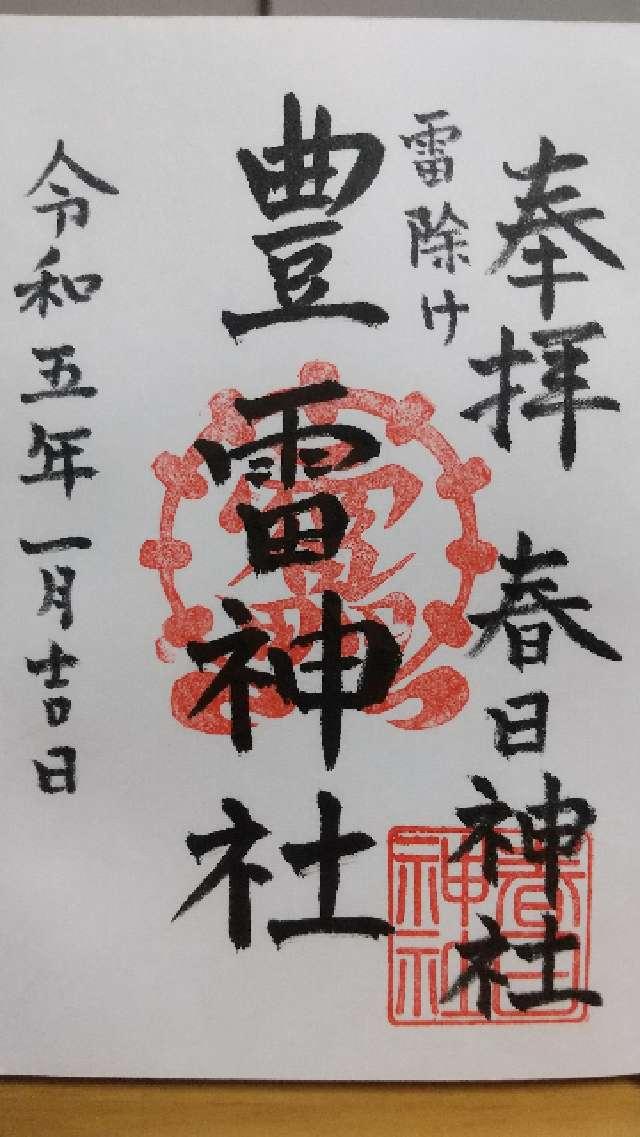 奉拝 春日神社
雷除け
豊雷神社
令和五年一月吉日
春日
神社